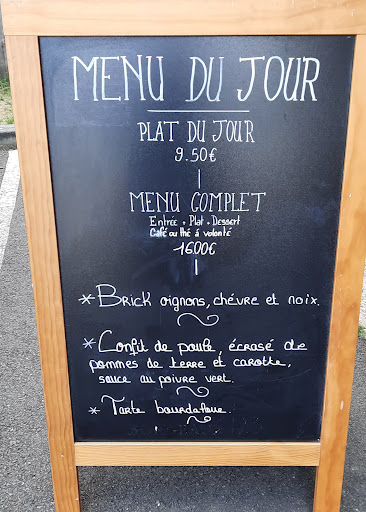 MENU DU JOUR
PLAT DU JOUR
9.50€
MENU COMPLET
Entrée + Plat + Dessert
Café ou thé à volonté
16.00€
* Brick oignons, chévre et noix.
* Confit de poule, écrasé de
pommes de terre et carotte,
sauce au poivre vert.
* Tarte bourdaloue.